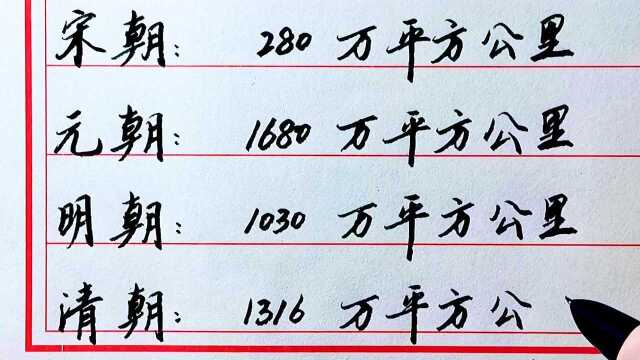 宋朝: 280 万平方公里
元朝: 1680 万平方公里
明朝: 1030 万平方公里
清朝: 1316 万平方公